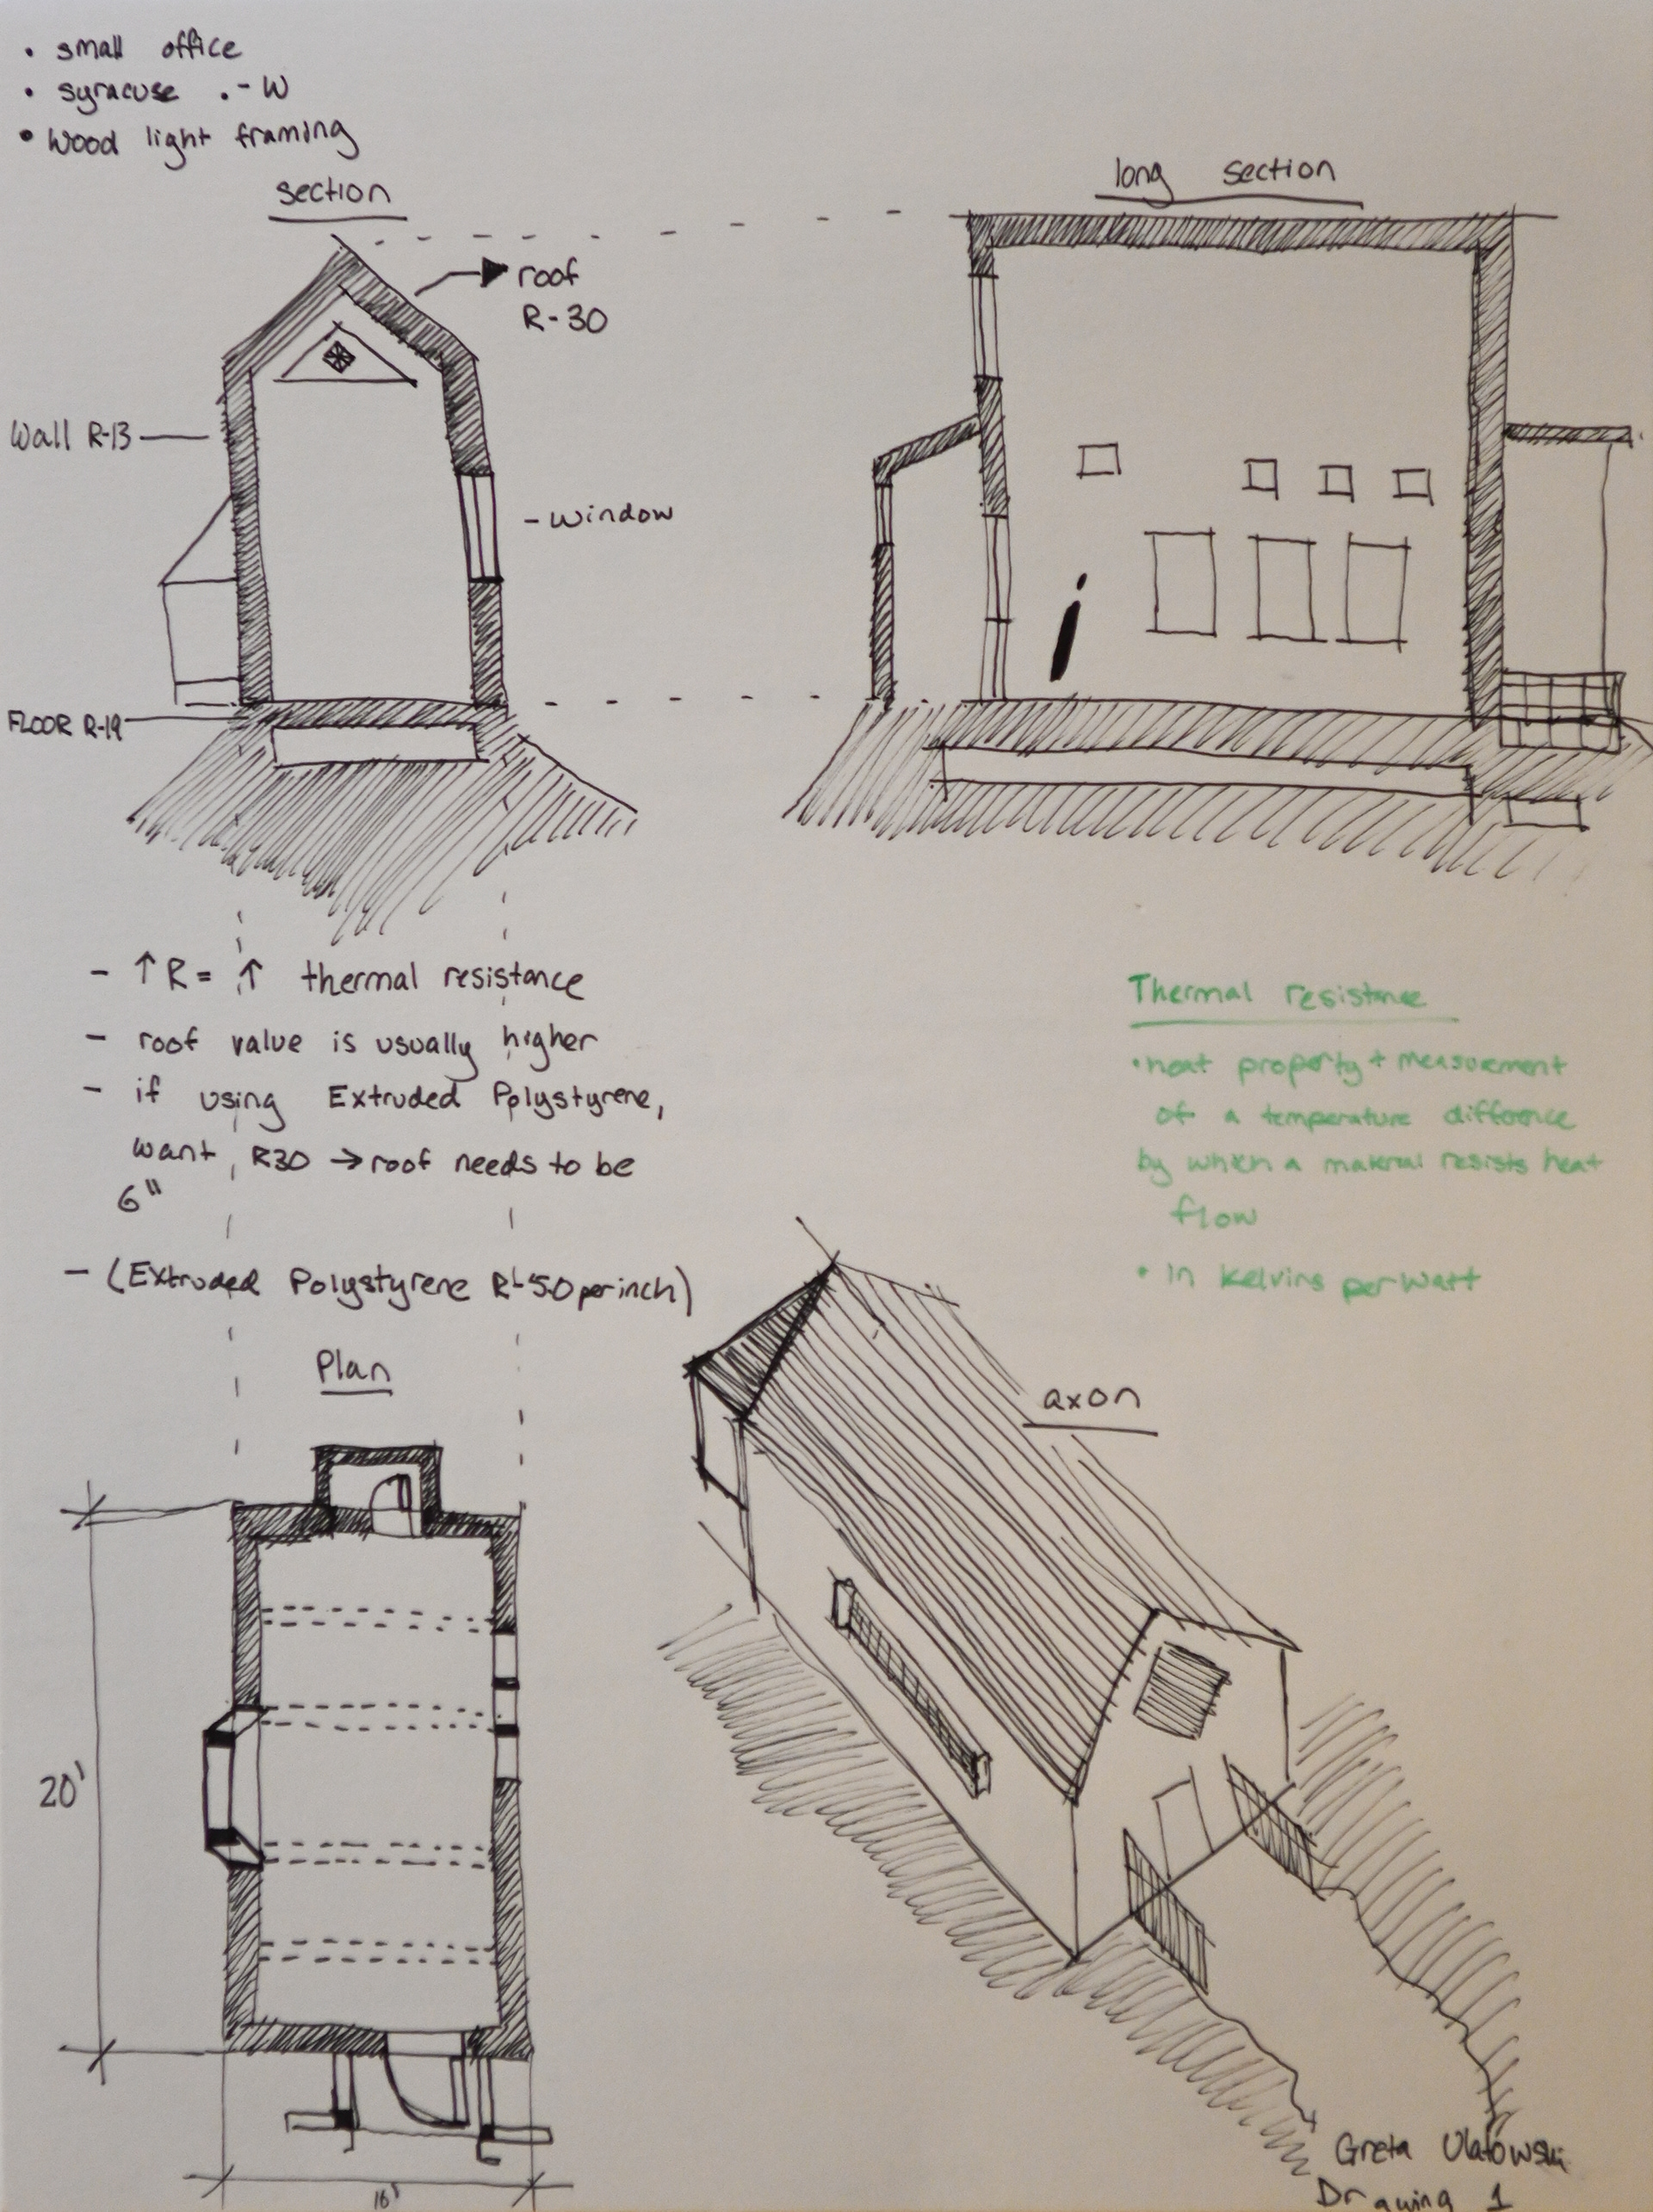 • small office
• syracuse .-W
• Wood light framing
section
long section
roof
R-30
Wall R-13
- window
FLOOR R-19
- ↑ R = ↑ thermal resistance
- roof value is usually higher
- if using Extruded Polystyrene,
want R30 → roof needs to be
6"
- (Extruded Polystyrene R-5.0 per inch)
Thermal resistance
• heat property + measurement
of a temperature difference
by which a material resists heat
flow
• in kelvins per watt
Plan
axon
20'
16'
Greta Ulatowski
Drawing 1